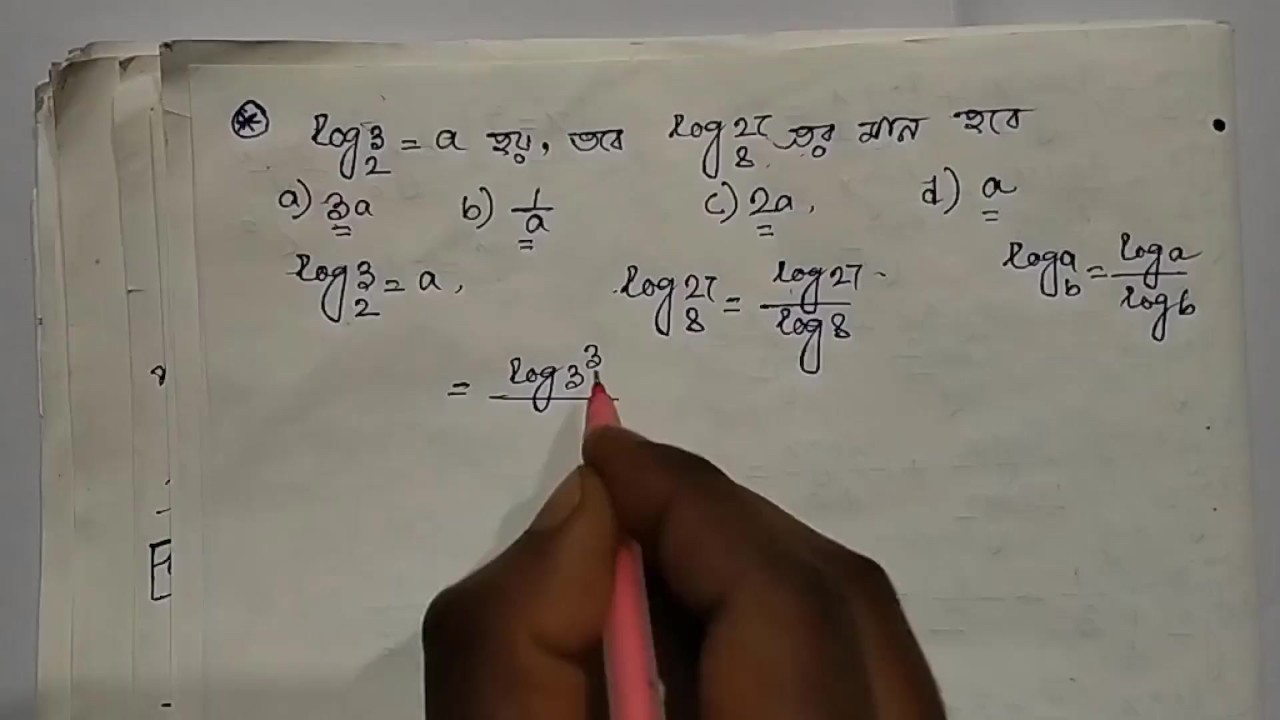 * log₂3 = a হয়, তবে log₈27 এর মান হবে
a) 3a b) 1/a c) 2a, d) a
log₂3 = a, log₈27 = log27/log8 log_b a = loga/logb
= log3³